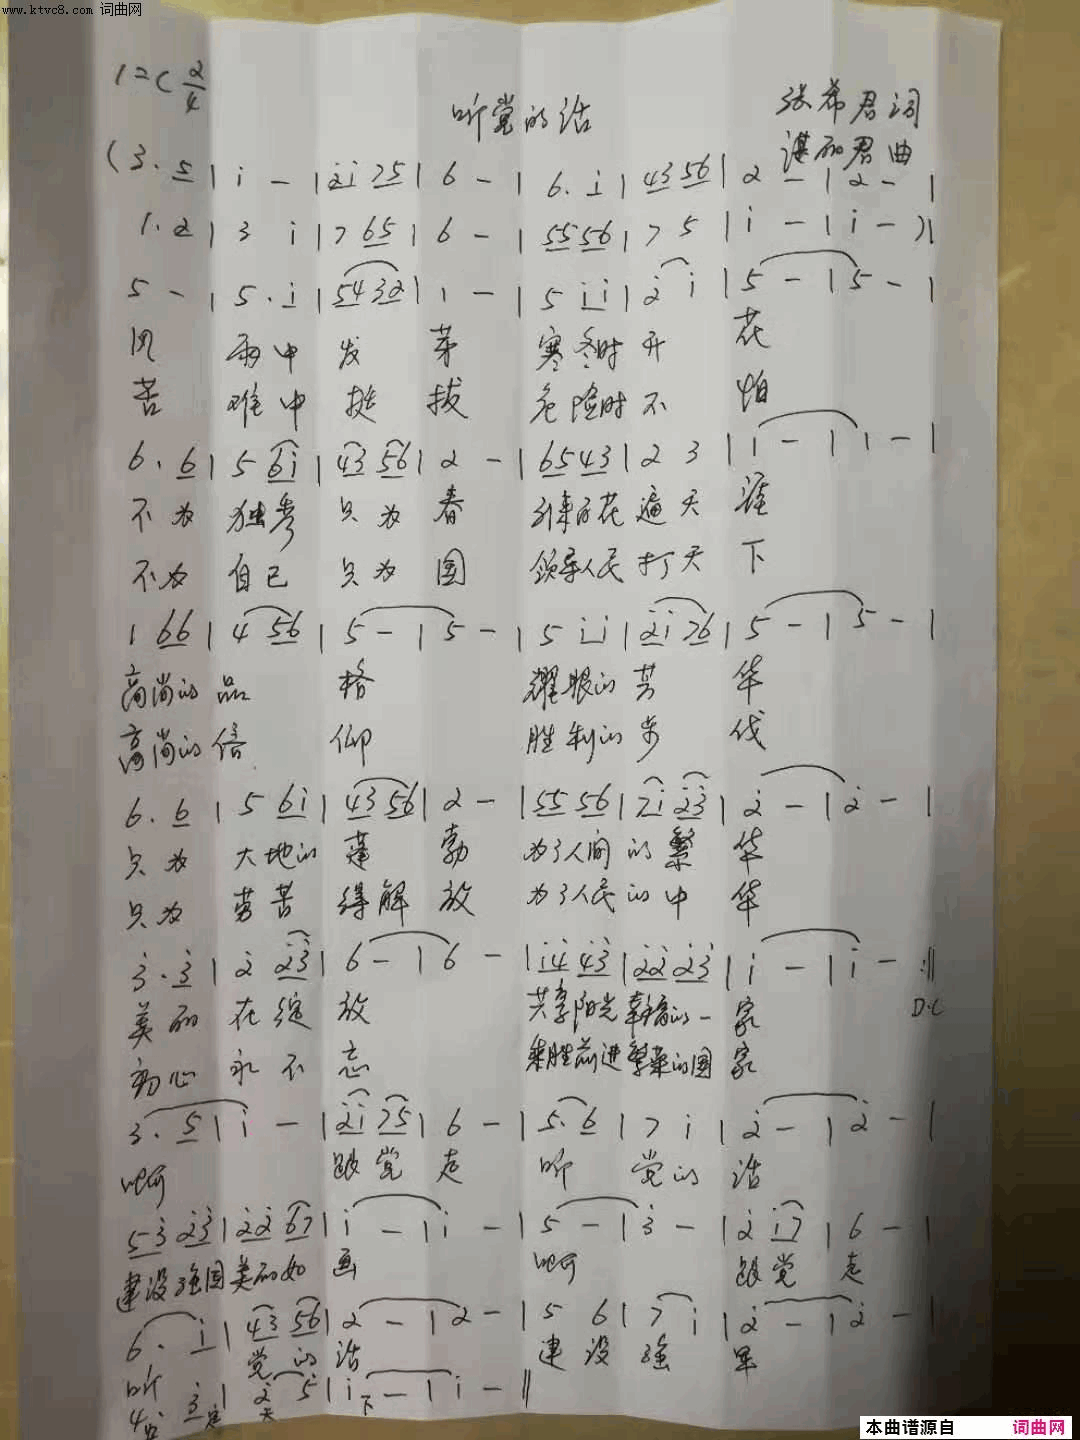 www.ktvc8.com 词曲网
1=C 2/4
听党的话
张希君词
谌丽君曲
(3. 5 | i - | 2i 75 | 6 - | 6. i | 43 56 | 2 - | 2 - |
1. 2 | 3 i | 7 65 | 6 - | 55 56 | 7 5 | i - | i - )|
5 - | 5. i | 5432 | 1 - | 5 ii | 2 i | 5 - | 5 - |
风 雨中 发 芽 寒冬时 开 花
苦 难中 挺 拔 危险时 不 怕
6. 6 | 5 6i | 43 56 | 2 - | 6543 | 2 3 | 1 - | 1 - |
不为 独秀 只为 春 引来百花 遍天 涯
不为 自己 只为 国 领导人民 打天 下
1 66 | 4 56 | 5 - | 5 - | 5 ii | 2i 76 | 5 - | 5 - |
高尚的 品 格 耀眼的 芳 华
高尚的 信 仰 胜利的 步 伐
6. 6 | 5 6i | 43 56 | 2 - | 55 56 | 7i 23 | 2 - | 2 - |
只为 大地的 蓬 勃 为了人间 的繁 华
只为 劳苦 得解 放 为了人民 的中 华
3. 3 | 2 23 | 6 - | 6 - | i4 43 | 22 23 | i - | i - :||
D.C
美丽 在绽 放 共享阳光 幸福的一 家
初心 永不 忘 乘胜前进 繁荣的国 家
3. 5 | i - | 2i 75 | 6 - | 5. 6 | 7 i | 2 - | 2 - |
啊 跟党 走 听 党的 话
53 23 | 22 67 | i - | i - | 5 - | 3 - | 2 i7 | 6 - |
建设强国 美丽如 画 啊 跟党 走
6. i | 43 56 | 2 - | 2 - | 5 6 | 7 i | 2 - | 2 - |
听 党的 话 建设 强 军
4 3 | 2 5 | i - | i - ||
安定 天 下
本曲谱源自 词曲网